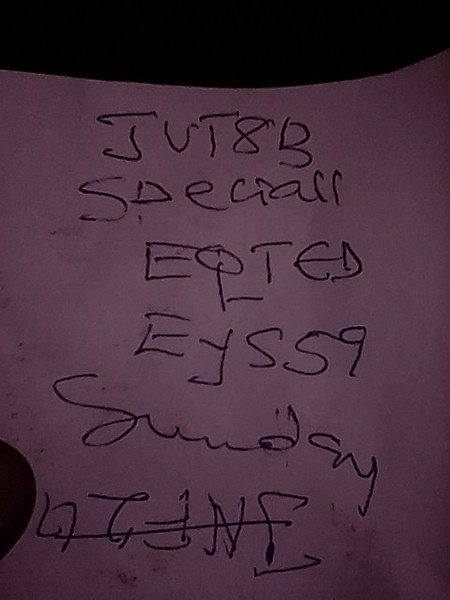 JVT8B
Speciall
EQTED
EyS59
Sunday